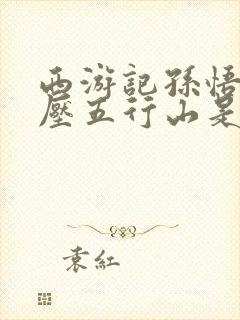 西游記孫悟
壓五行山是
袁紅